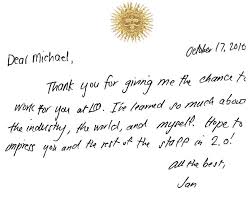 October 17, 2010
Dear Michael,
Thank you for giving me the chance to
work for you at LSD. I've learned so much about
the industry, the world, and myself. I hope to
impress you and the rest of the staff in 2.0!
All the best,
Jan